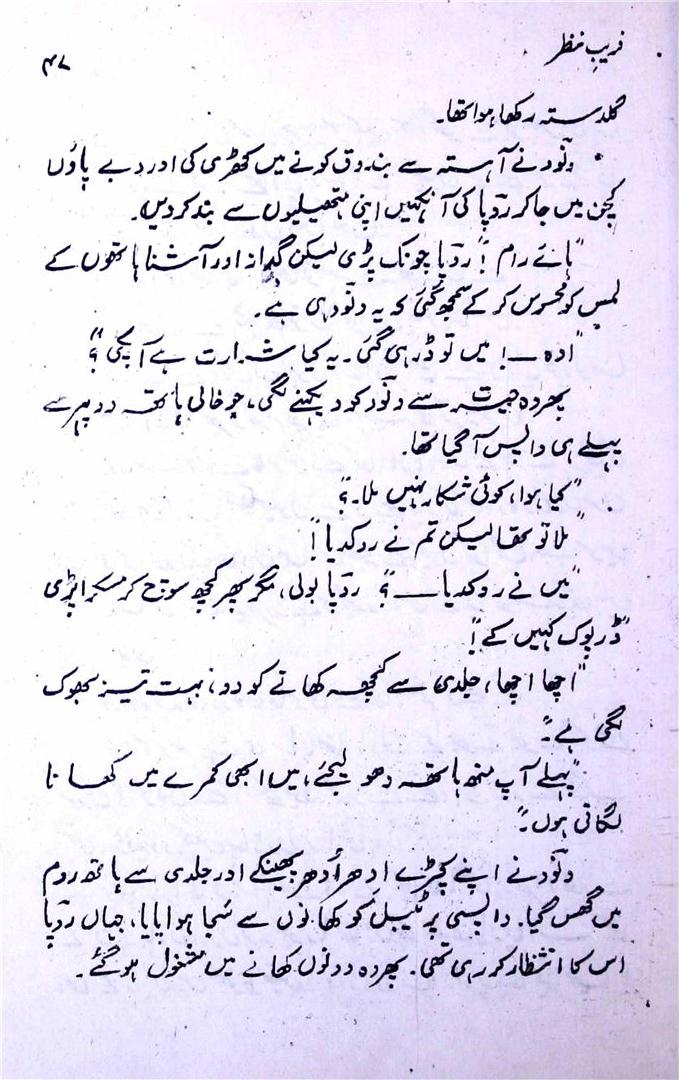 فریبِ نظر
۴۷
گلدستہ رکھا ہوا تھا۔
ونّود نے آہستہ سے بندوق کونے میں کھڑی کی اور دبے پاؤں
کچن میں جاکر روپا کی آنکھیں اپنی ہتھیلیوں سے بند کر دیں۔
"ہائے رام!" روپا چونک پڑی لیکن گداز اور آشنا ہاتھوں کے
لمس کو محسوس کر کے سمجھ گئی کہ یہ ونّود ہی ہے۔
"اوہ ــــ! میں تو ڈر ہی گئی۔ یہ کیا شرارت ہے آپکی؟"
پھر وہ حیرت سے ونّود کو دیکھنے لگی، جو خالی ہاتھ دوپہر سے
پہلے ہی واپس آگیا تھا۔
"کیا ہوا، کوئی شکار نہیں ملا۔؟"
"ملا تو تھا لیکن تم نے روکدیا!"
"میں نے روکدیا ــــ؟" روپا بولی، مگر پھر کچھ سوچ کر مسکرا پڑی
"ڈرپوک کہیں کے!"
"اچھا اچھا، جلدی سے کچھ کھانے کو دو، بہت تیز بھوک
لگی ہے۔"
"پہلے آپ منھ ہاتھ دھو لیجئے، میں ابھی کمرے میں کھانا
لگاتی ہوں۔"
ونّود نے اپنے کپڑے اِدھر اُدھر پھینکے اور جلدی سے باتھ روم
میں گھس گیا۔ واپسی پر ٹیبل کو کھانوں سے سجا ہوا پایا، جہاں روپا
اس کا انتظار کر رہی تھی۔ پھر وہ دونوں کھانے میں مشغول ہوگئے۔